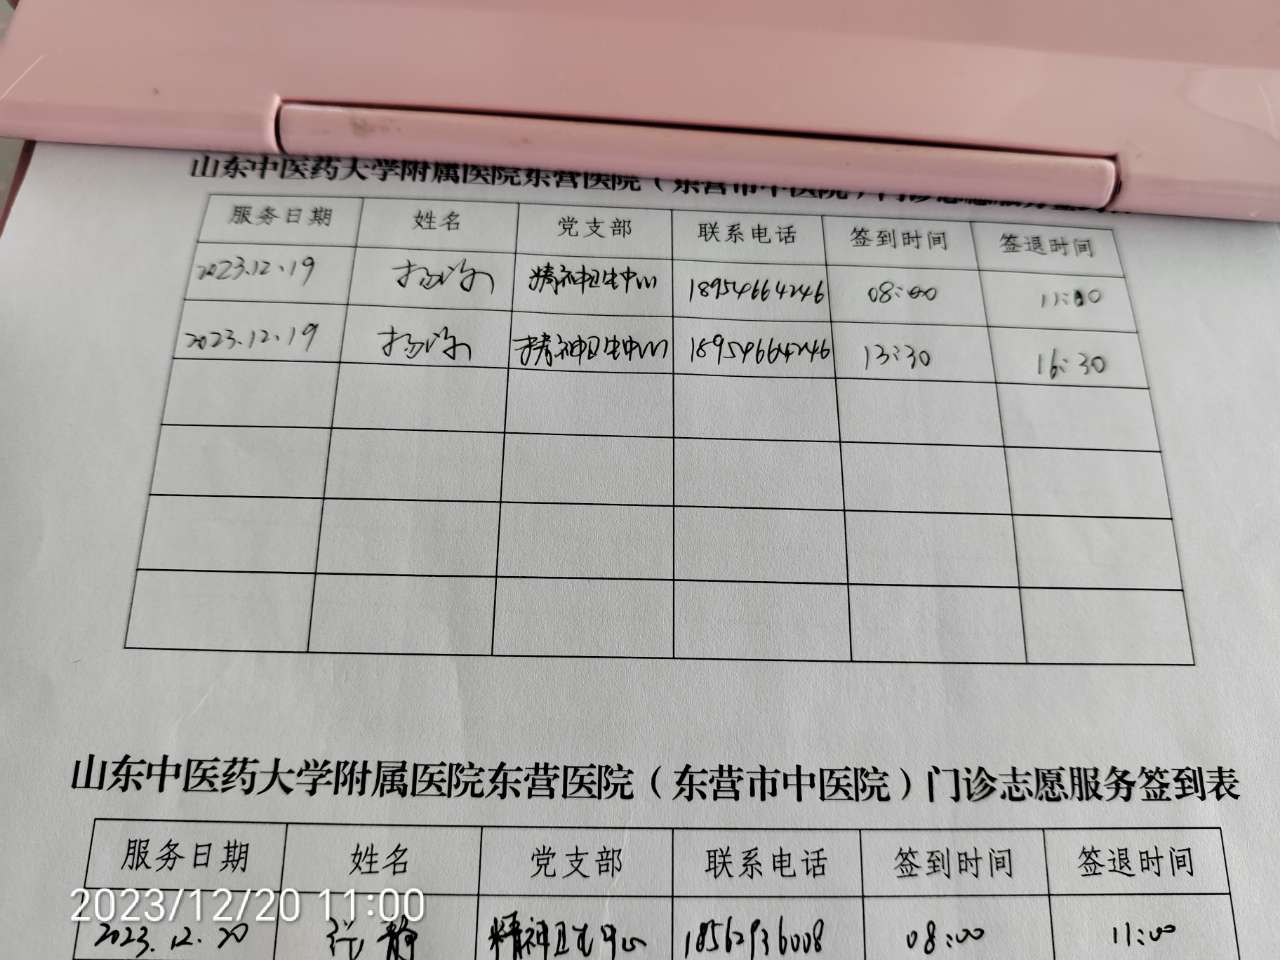 山东中医药大学附属医院东营医院（东营市中医院）门诊志愿服务签到表
服务日期 姓名 党支部 联系电话 签到时间 签退时间
2023.12.19 精神卫生中心 18954664246 08:00 11:00
2023.12.19 精神卫生中心 18954664246 13:30 16:30
山东中医药大学附属医院东营医院（东营市中医院）门诊志愿服务签到表
服务日期 姓名 党支部 联系电话 签到时间 签退时间
2023/12/20 11:00
2023.12.20 张静 精神卫生中心 18562936008 08:00 11:00